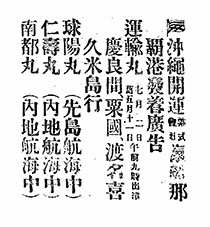 沖繩開運株式會社 那
覇港發着廣告
運輸丸 七月二日午前九時出港
舊五月十一日
慶良間粟國、渡名喜
久米島行
球陽丸 (先島航海中)
仁壽丸 (內地航海中)
南都丸 (內地航海中)